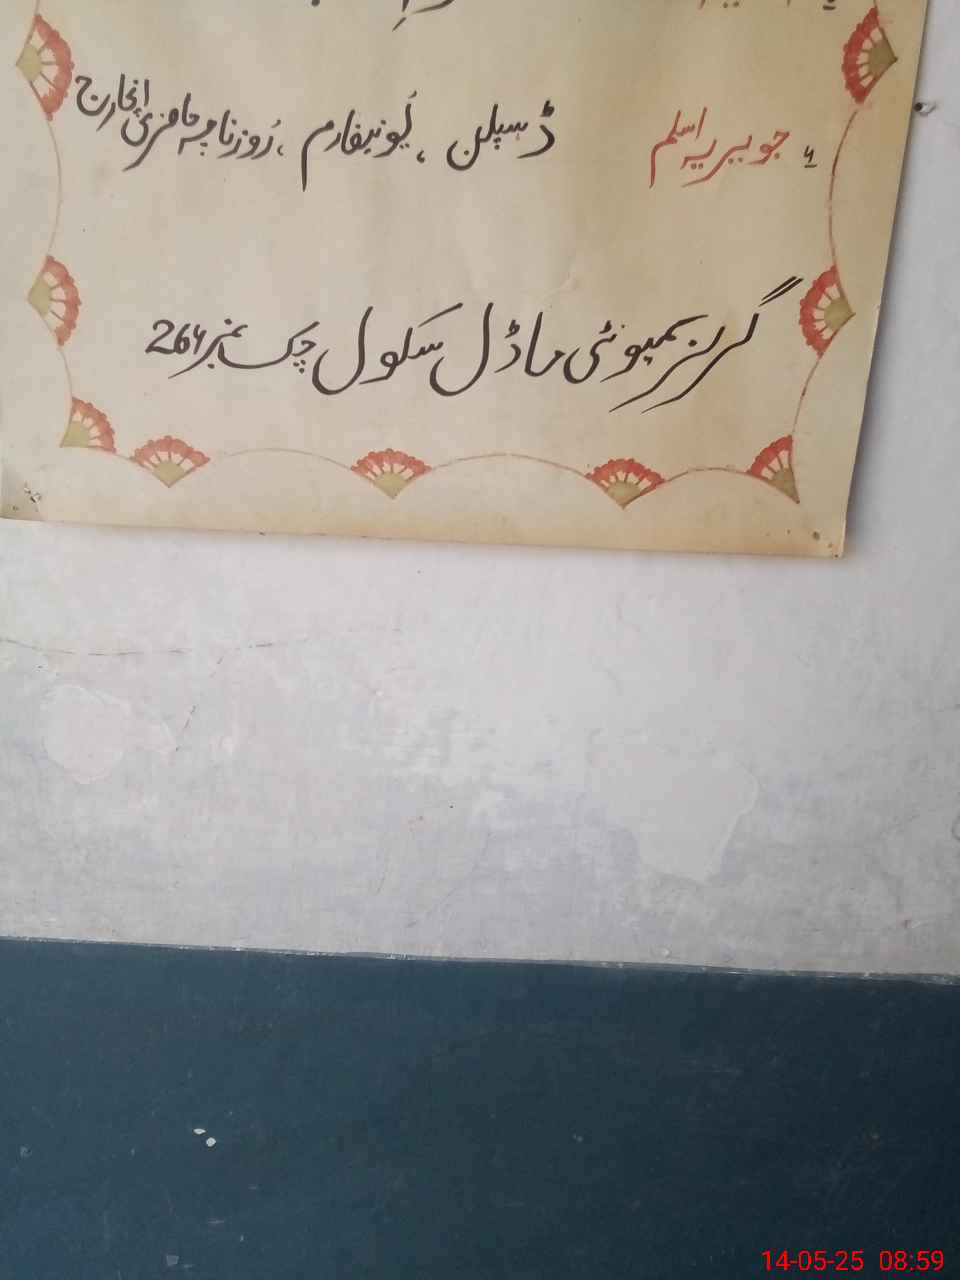 ۶ جویریہ اسلم ڈسپلن ، یُونیفارم ، رُوزنامچہ حاضری انچارج
گرلز کمیونٹی ماڈل سکول چک نمبر 266
14-05-25 08:59